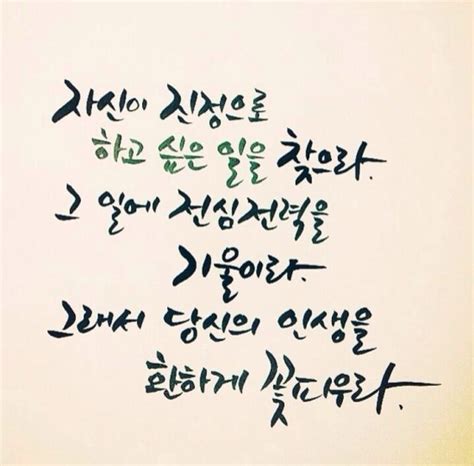 자신이 진정으로
하고 싶은 일을 찾으라.
그 일에 전심전력을
기울이라.
그래서 당신의 인생을
환하게 꽃피우라.